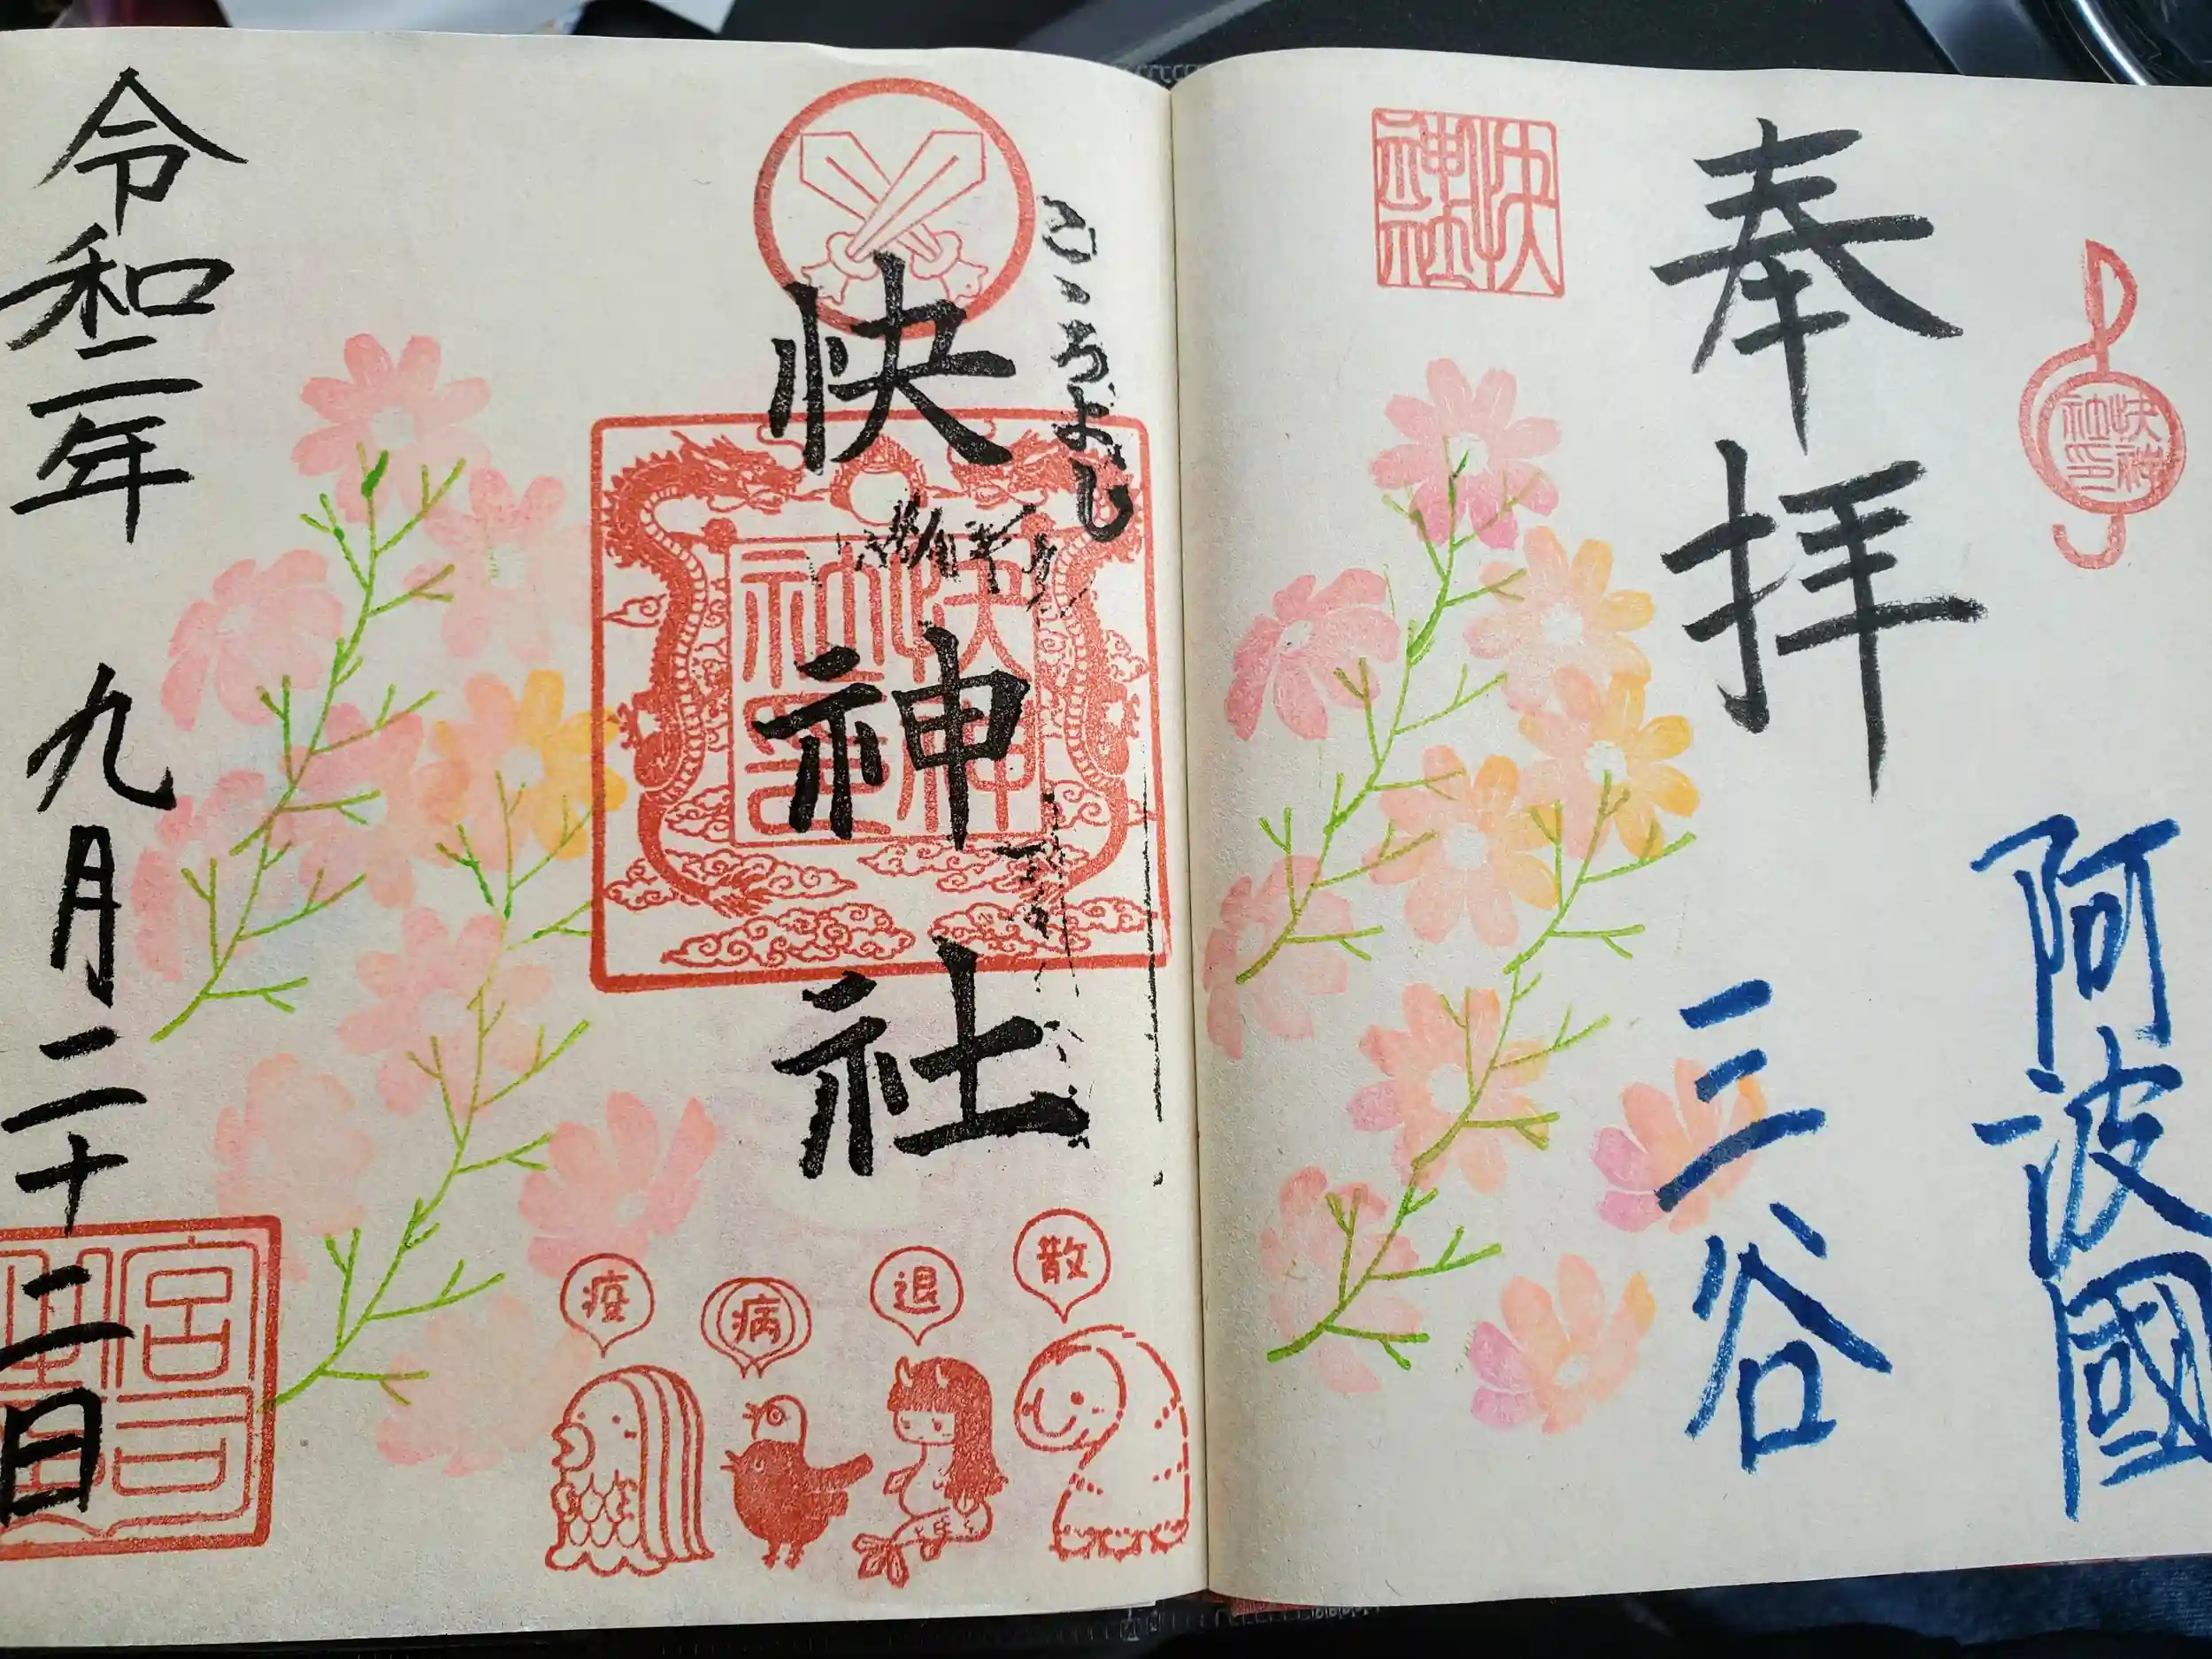 快神社印
阿波國
奉拝
三谷
快神社
こゝろよし
快神社
快神社印
疫
病
退
散
令和二年 九月二十二日